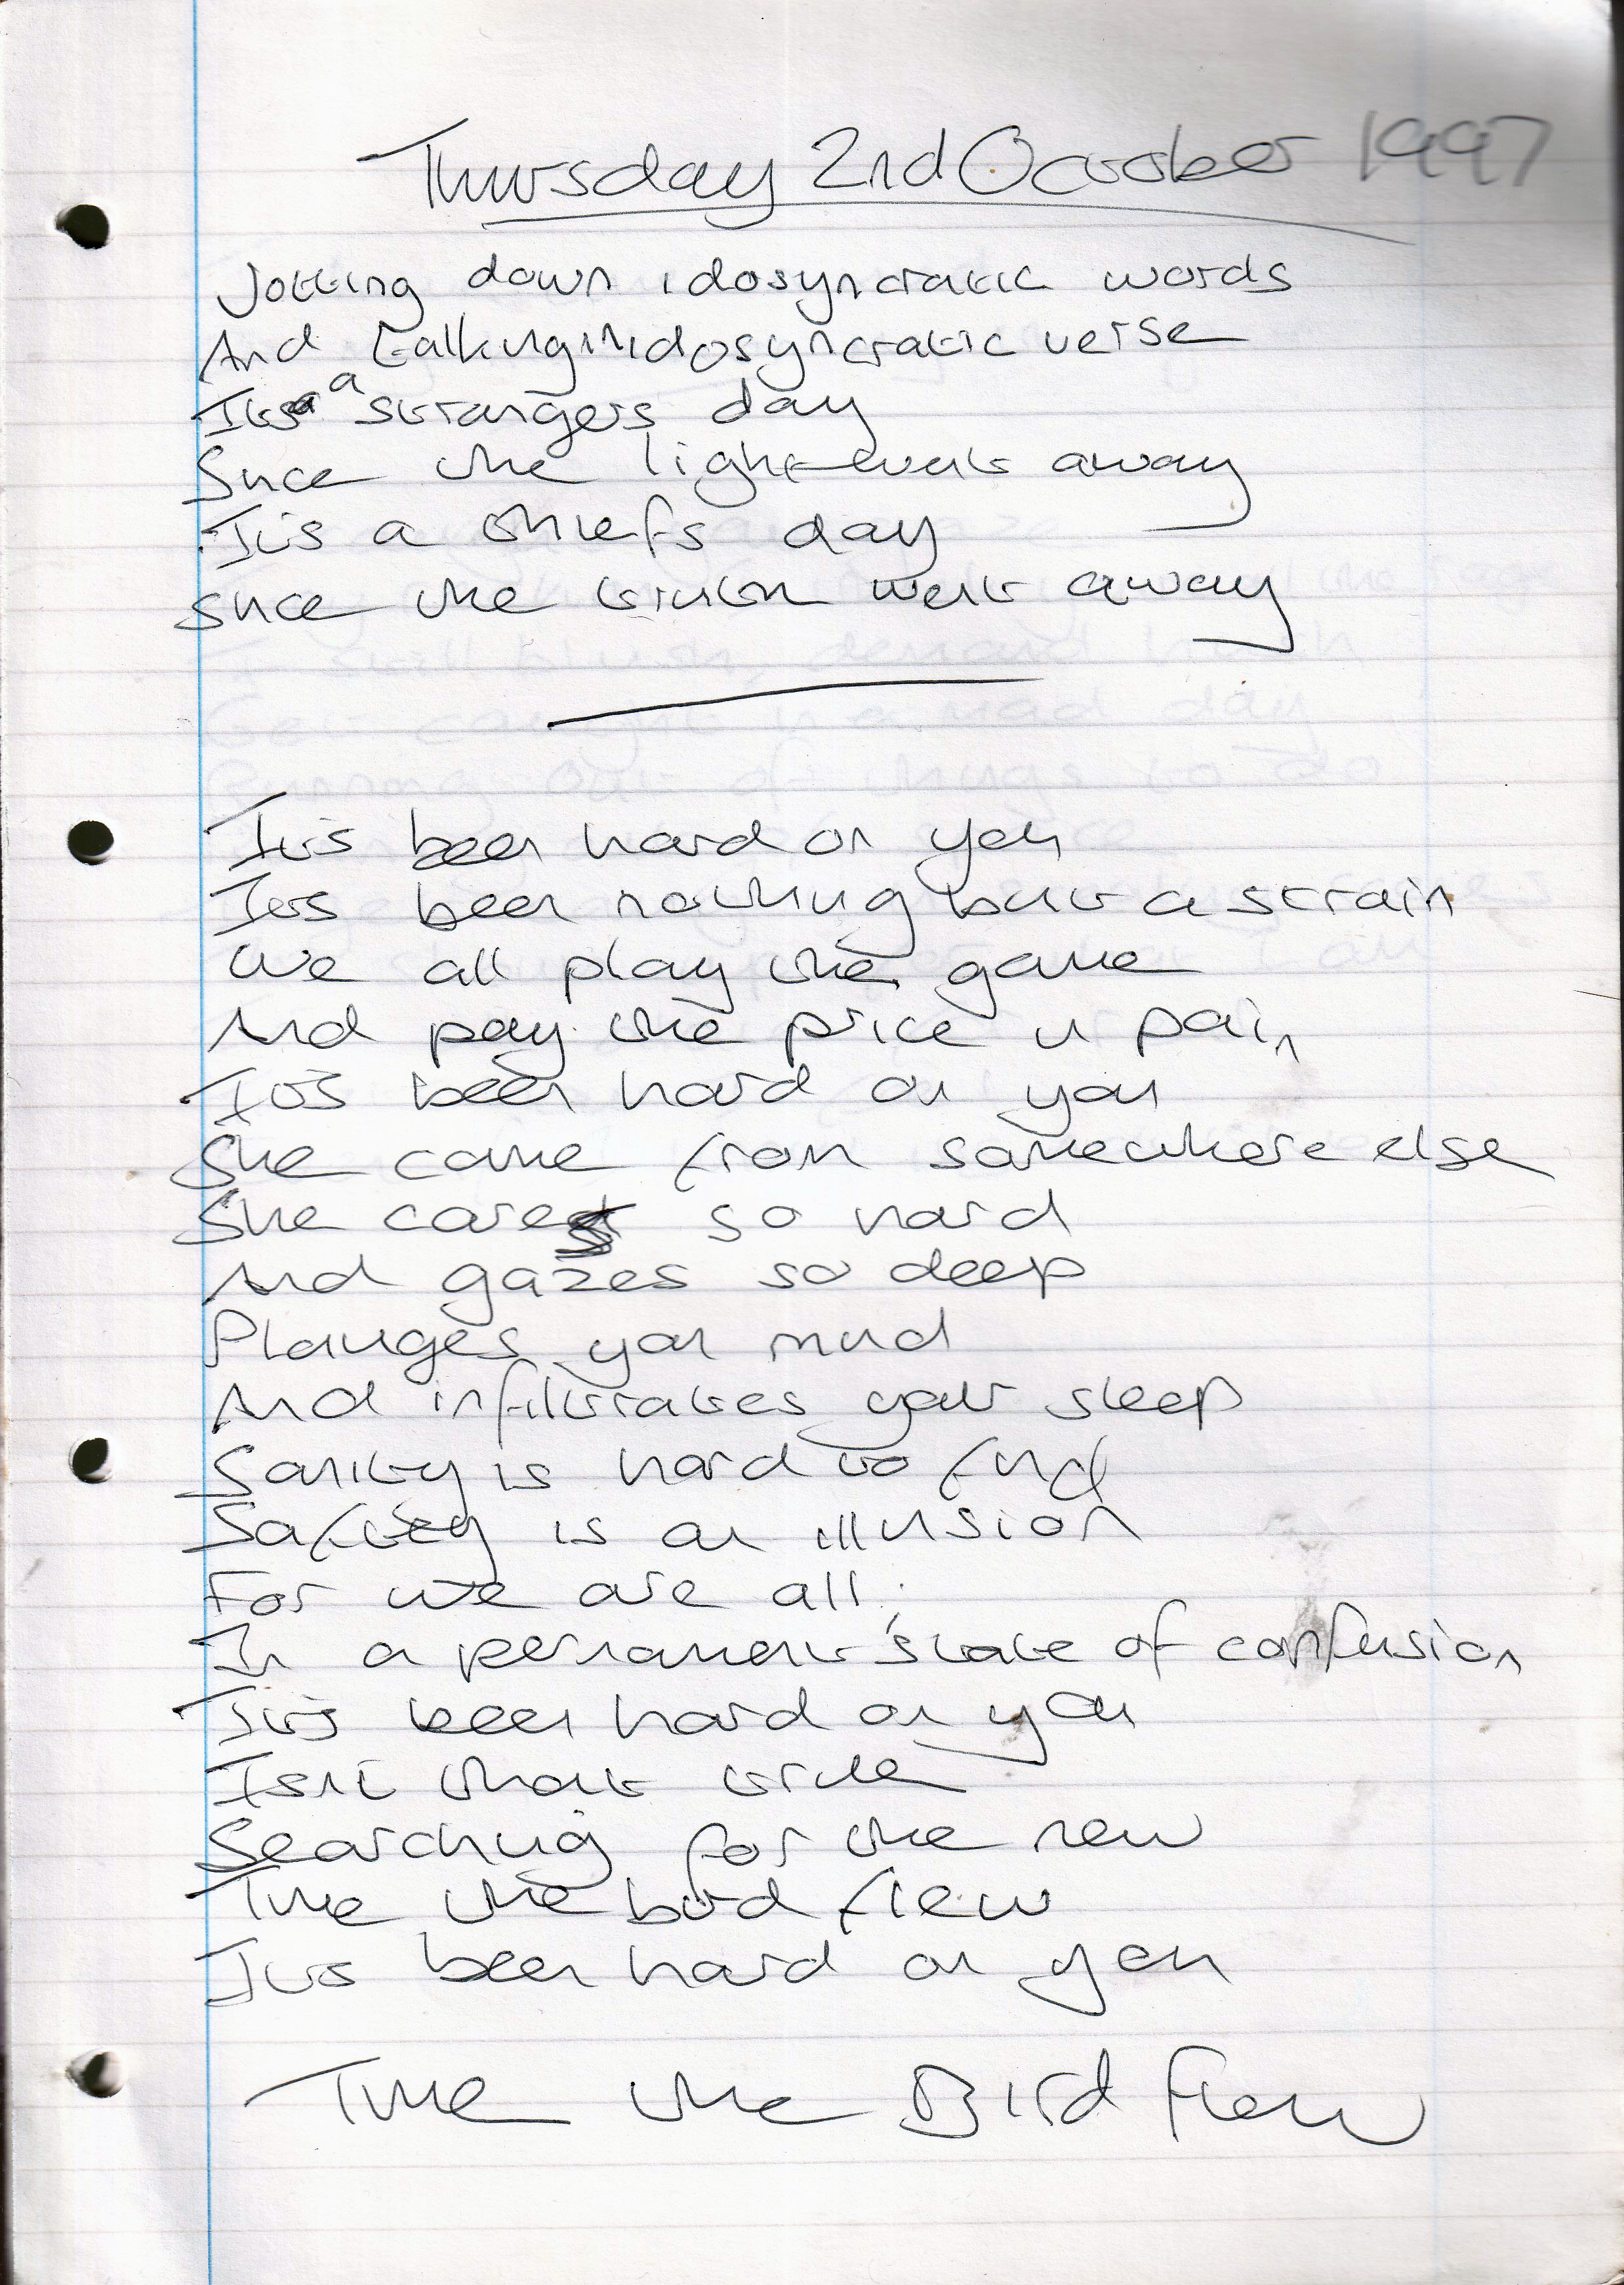 Thursday 2nd October 1997
Jotting down idosyncratic words
And talking in idosyncratic verse
Its a strangers day
Since the light went away
Its a thiefs day
since the truth went away
It's been hard on you
Its been nothing but a strain
We all play the game
And pay the price in pain
It's been hard on you
She came from somewhere else
She cares so hard
And gazes so deep
Plauges your mind
And infiltrates your sleep
Sanity is hard to find
Safety is an illusion
For we are all
In a permanent state of confusion
It's been hard on you
Isnt that true
Searching for the new
Time the bird flew
Its been hard on you
Time the Bird Flew